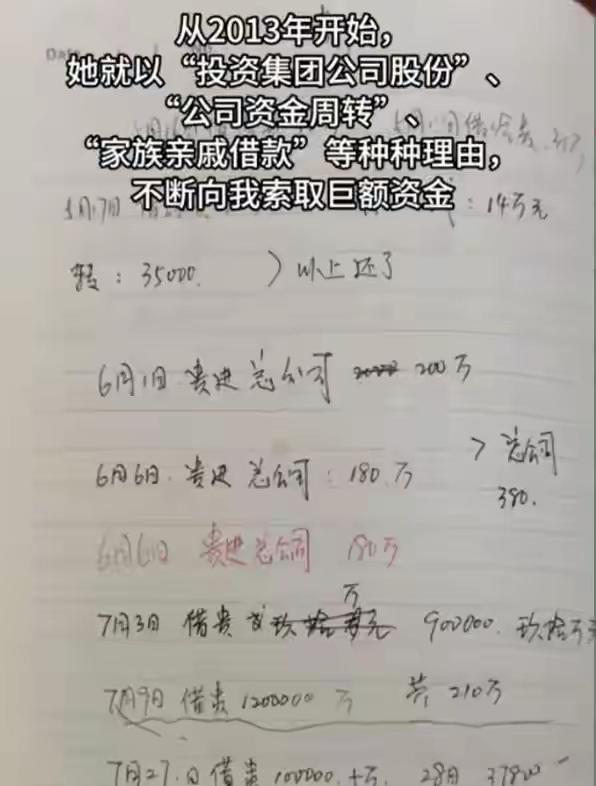 从2013年开始，
她就以“投资集团公司股份”、
“公司资金周转”、
“家族亲戚借款”等种种理由，
不断向我索取巨额资金
Date
月17日 ：14万元
转：35000. 〉以上还了
6月1日 贵进总公司 200万
6月6日. 贵进 总公司：180.万 > 总公司
380.
6月6日 贵进总公司 180万
万
7月3日 借贵 玖拾 元 900000. 玖拾万元
7月9日 借贵 1200000 万 共 210万
7月27.日 借贵 100000. 十万. 28日